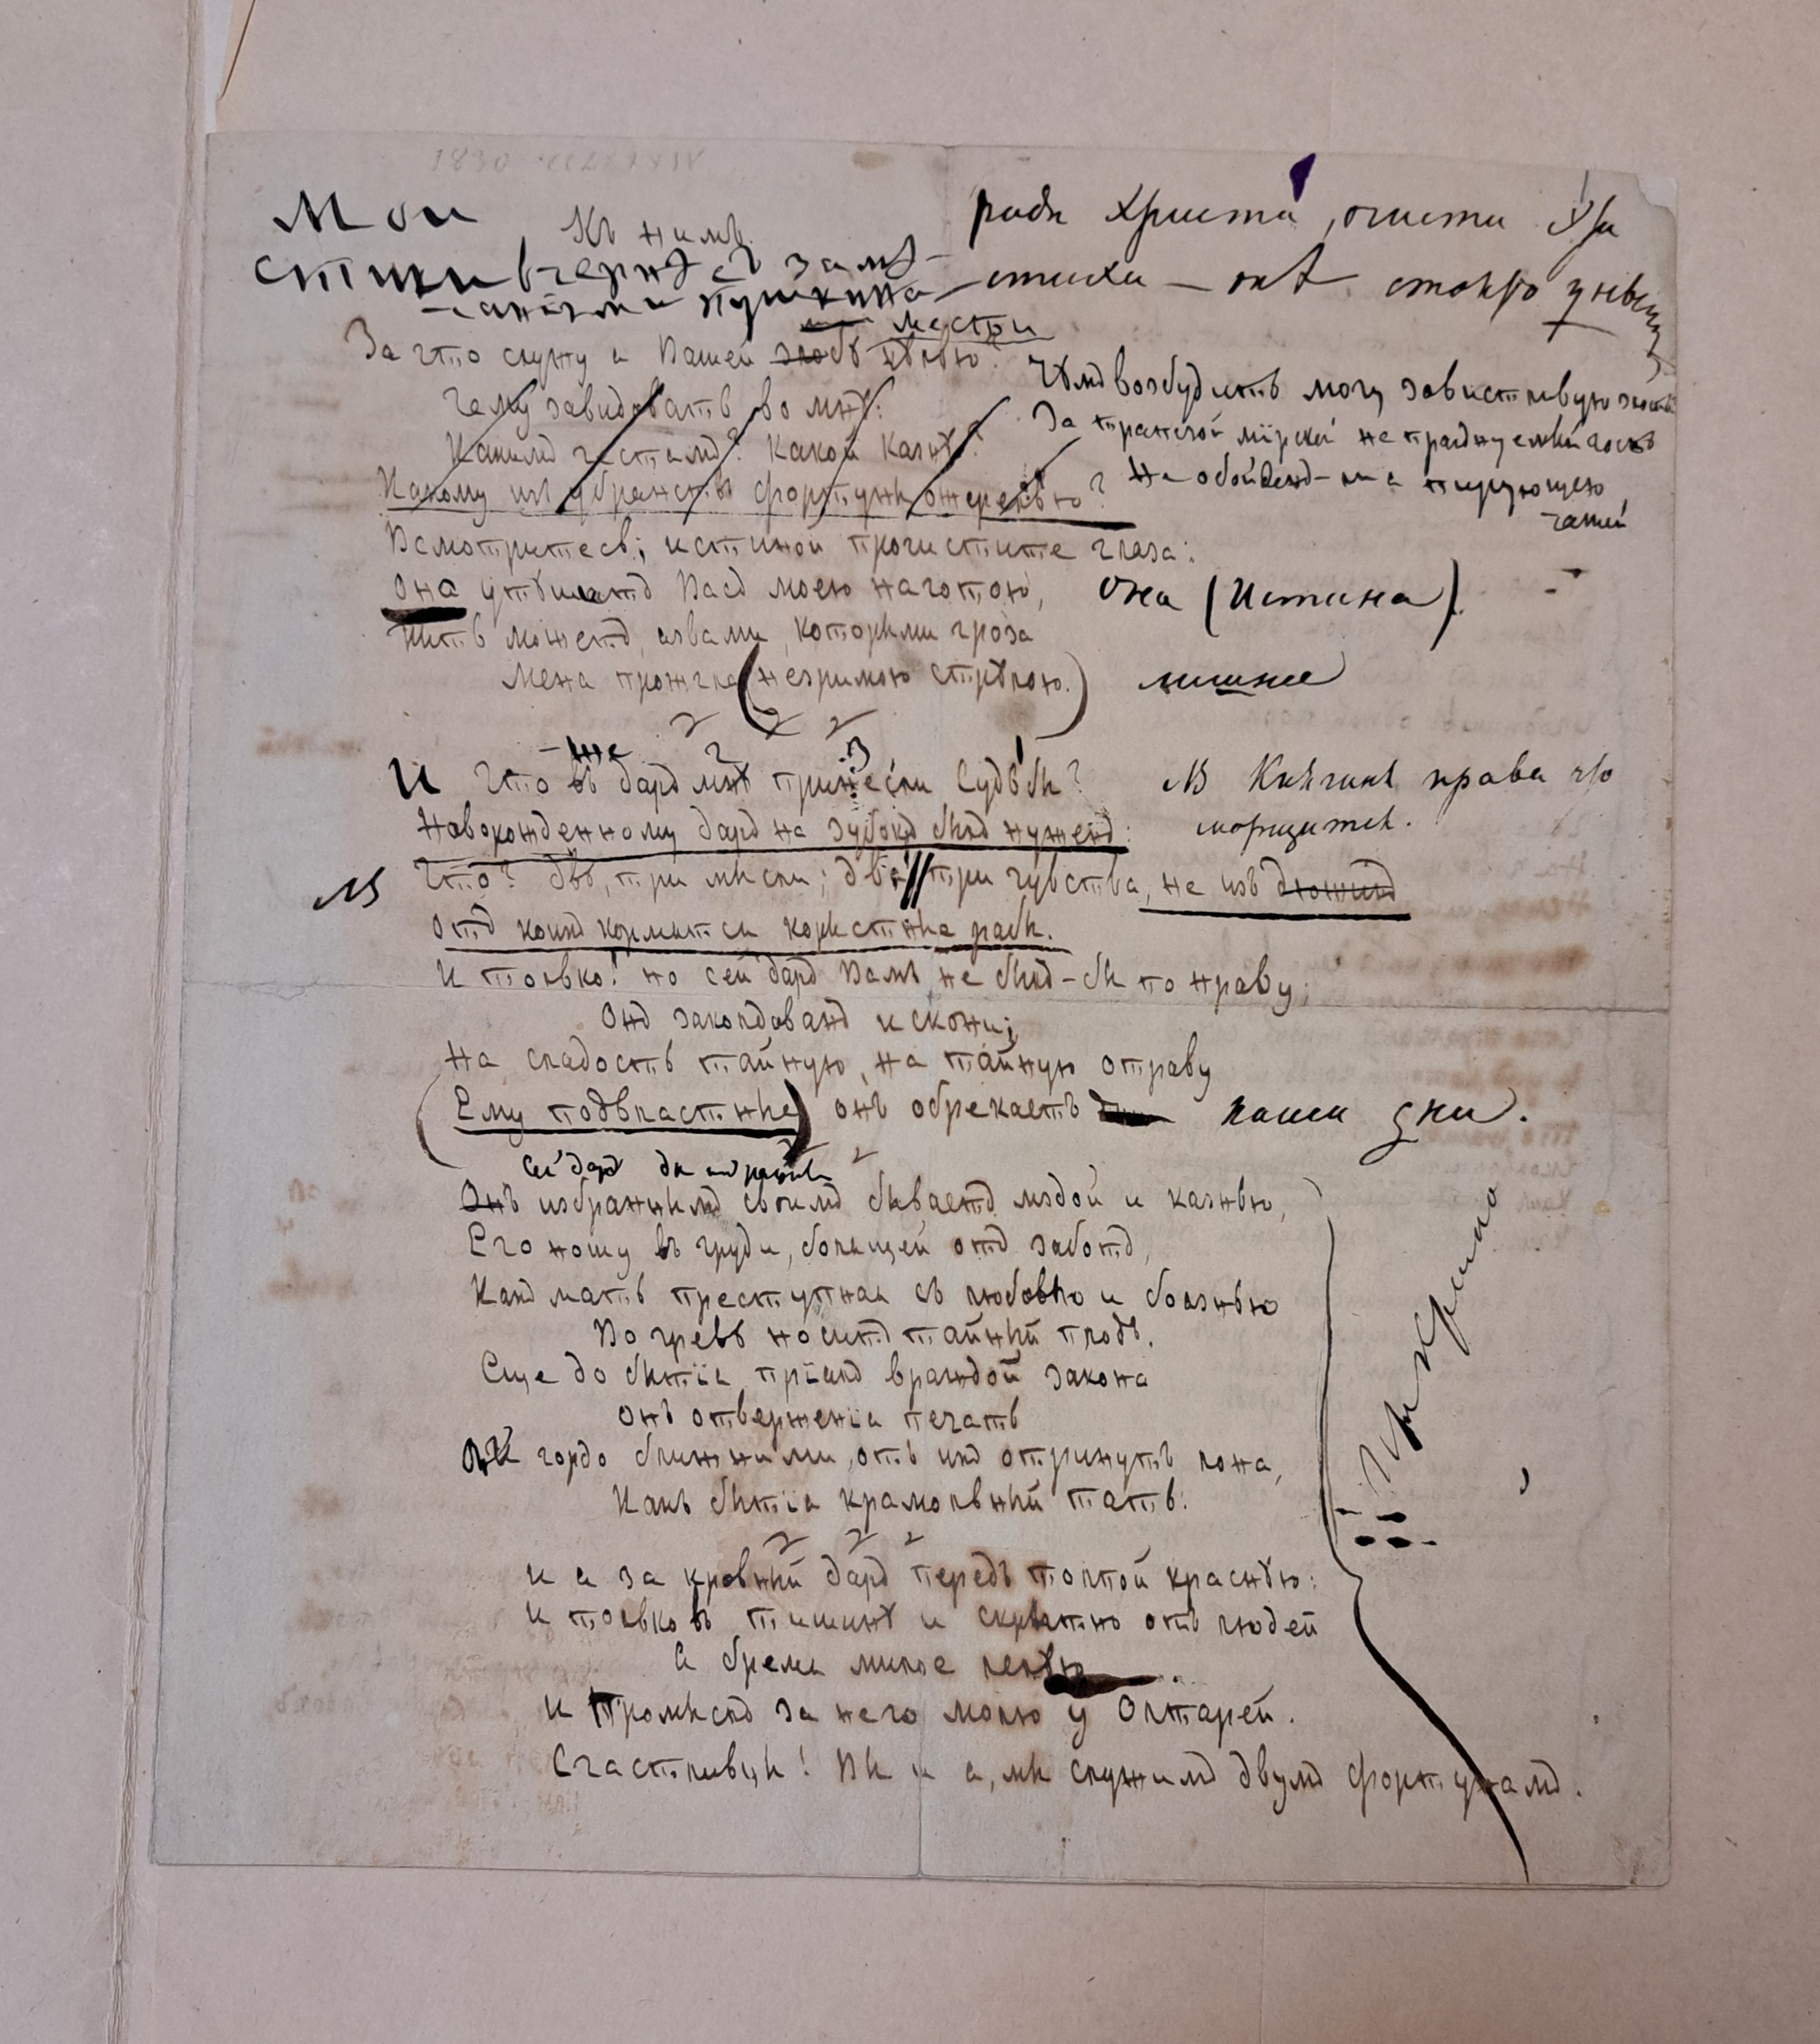 1830
Мои
Къ нимъ.
стихи вчернѣ съ замѣ-
-чаніями Пушкина
ради Христа, очисти эти
стихи — онѣ стоютъ
мести
За что служу я Вашей злобѣ цѣлью?
Чему завидовать во мнѣ:
Какимъ честямъ? Какой казнѣ?
Какому изъ убранствъ фортуны ожерелью?
Чѣмъ возбудить могу завистливую злость
За трапезой мірской не празднуемый гость
Не обойденъ-ли я пирующею
чашей
Всмотритесь; истиной прочистите глаза:
Она утѣшитъ Васъ моею наготою,
Она (Истина).
Иль можетъ, язвами, которыми гроза
Меня прожгла (незримою стрѣлою.)
лишнее
-же 2 3
И Что въ даръ мнѣ принесли Судьбы?
NB Княгиня права что
морщится.
Новорожденному даръ на зубокъ былъ нуженъ:
NB Что? двѣ, три мысли; два // три чувства, не изъ дюжинъ
Отъ коихъ кормятся корыстные рабы.
И только! но сей даръ Вамъ не былъ-бы по нраву;
Онъ заколдованъ искони;
На сладость тайную, на тайную отраву
(Ему подвластные) онъ обрекаетъ наши дни.
Сей даръ
Онъ избраннымъ своимъ бываетъ мздой и казнью,
Его ношу въ груди, болящей отъ заботъ,
Какъ мать преступная съ любовью и боязнью
Во чревѣ носитъ тайный плодъ.
Еще до бытія, пріялъ враждой закона
Онъ отверженія печать
гордо ближними, отъ ихъ отринутъ лона,
Какъ бытія крамольный тать.
И я за кровный даръ передъ толпой краснѣю:
И только въ тишинѣ и скрытно отъ людей
Я бремя милое лелѣю
И Промыслъ за него молю у Олтарей.
Счастливцы! Вы и я, мы служимъ двумъ фортунамъ.
Прекрасно